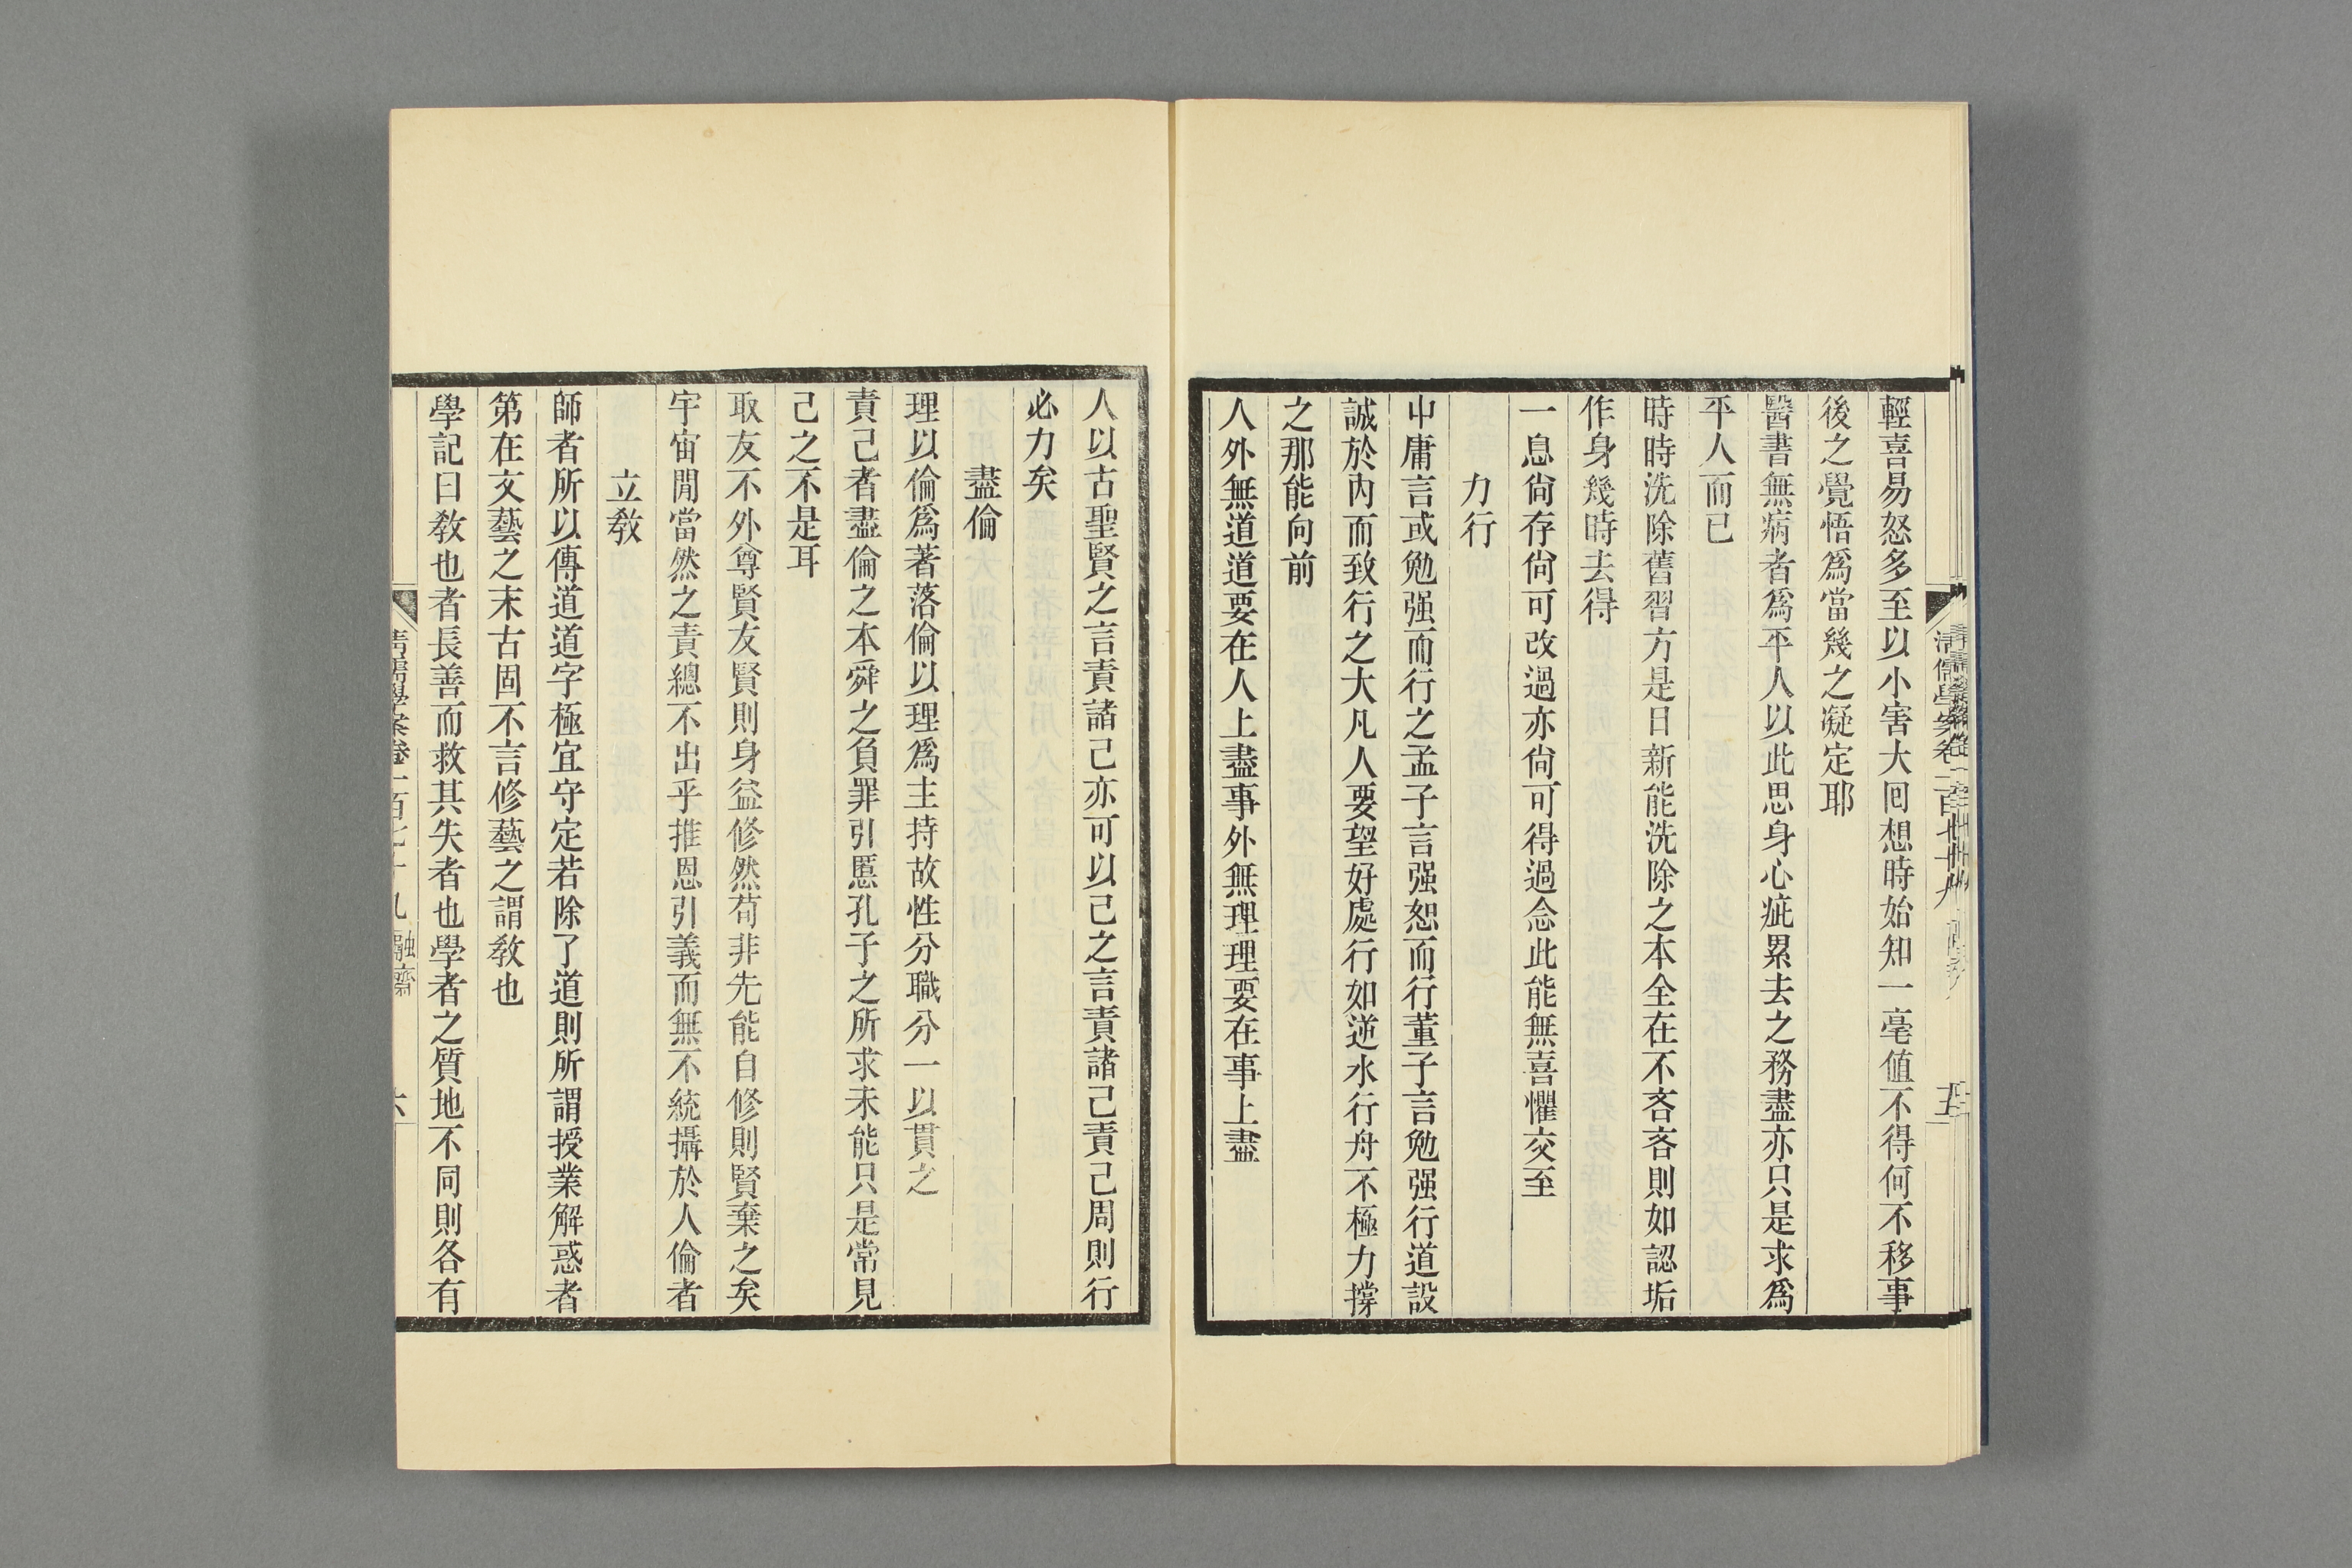 輕喜易怒多至以小害大囘想時始知一毫値不得何不移事
後之覺悟爲當幾之凝定耶
醫書無病者爲平人以此思身心疵累去之務盡亦只是求爲
平人而已
時時洗除舊習方是日新能洗除之本全在不吝吝則如認垢
作身幾時去得
一息尙存尙可改過亦尙可得過念此能無喜懼交至
力行
中庸言或勉强而行之孟子言强恕而行董子言勉强行道設
誠於內而致行之大凡人要望好處行如逆水行舟不極力撐
之那能向前
人外無道道要在人上盡事外無理理要在事上盡
人以古聖賢之言責諸己亦可以己之言責諸己責己周則行
必力矣
盡倫
理以倫爲著落倫以理爲主持故性分職分一以貫之
責己者盡倫之本舜之負罪引慝孔子之所求未能只是常見
己之不是耳
取友不外尊賢友賢則身益修然苟非先能自修則賢棄之矣
宇宙閒當然之責總不出乎推恩引義而無不統攝於人倫者
立敎
師者所以傳道道字極宜守定若除了道則所謂授業解惑者
第在文藝之末古固不言修藝之謂敎也
學記曰敎也者長善而救其失者也學者之質地不同則各有
清儒學案卷一百七十九 融齋
六